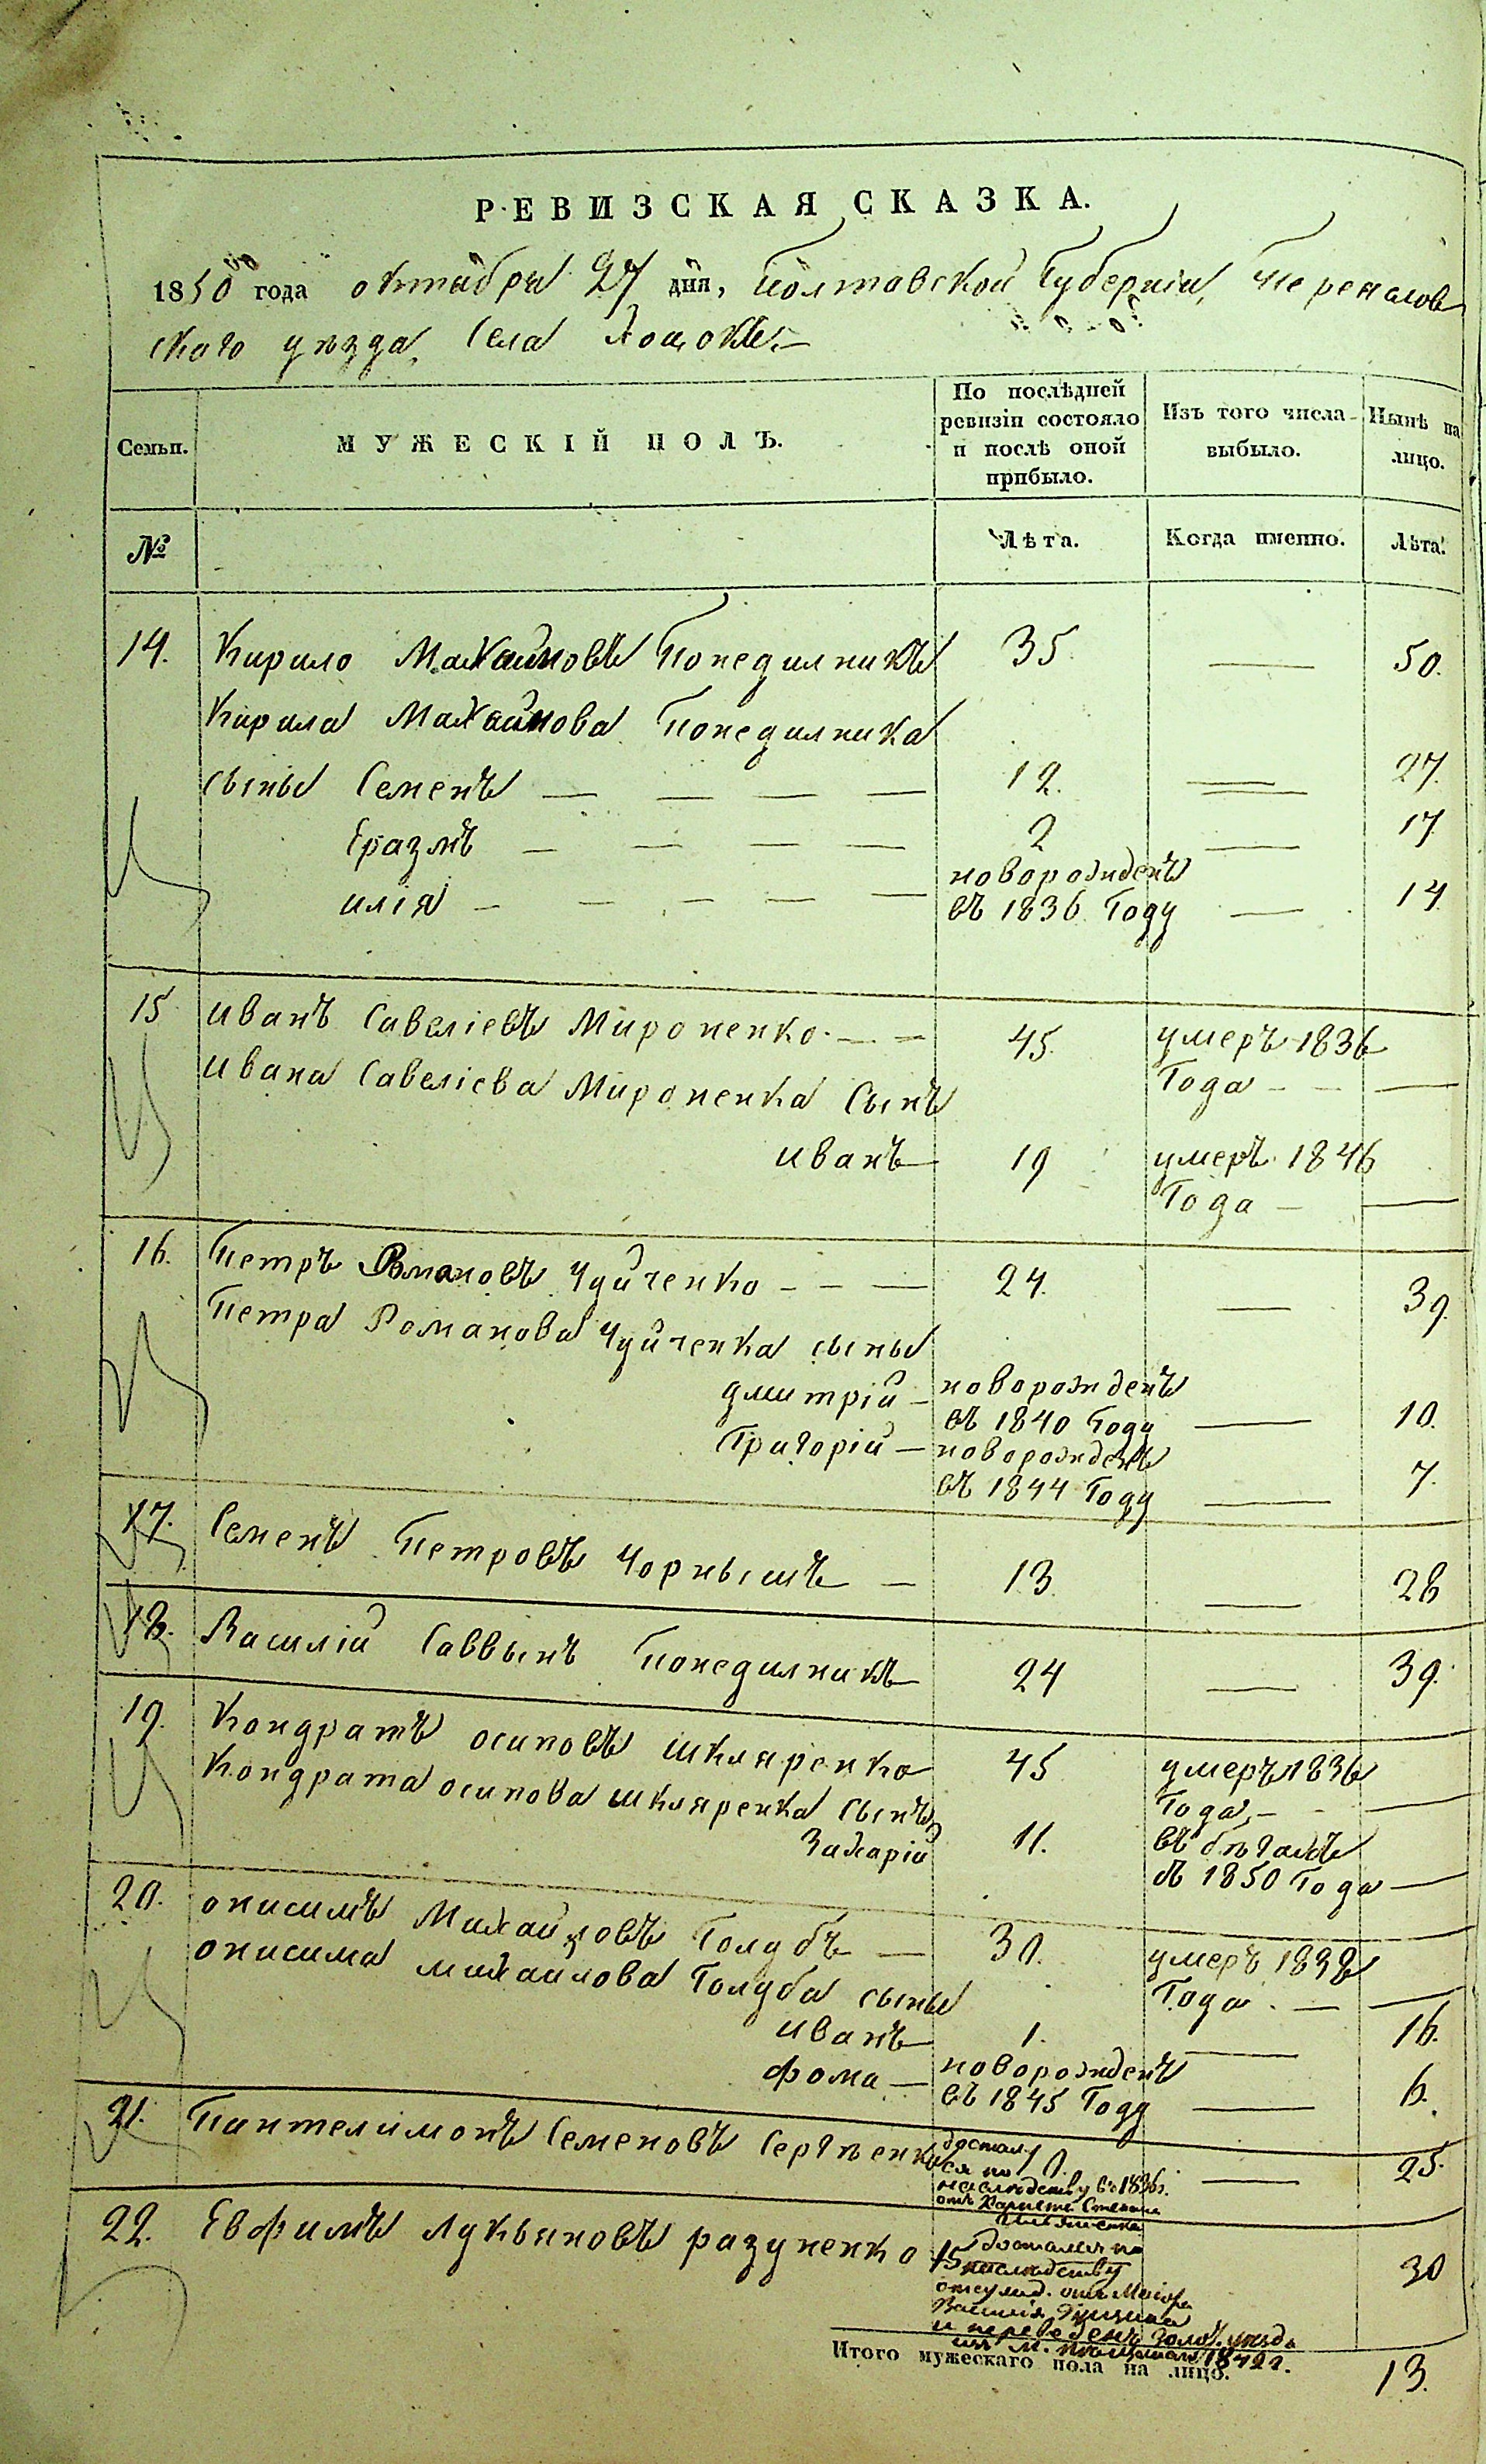 РЕВИЗСКАЯ СКАЗКА.
1850 года октября 27 дня, Полтавской Губерніи, Переяслов
скаго уѣзда, Села
Семьи.
МУЖЕСКІЙ ПОЛЪ.
По послѣдней
ревизіи состояло
и послѣ оной
прибыло.
Изъ того числа
выбыло.
Нынѣ на
лицо.
№
Лѣта.
Когда именно.
Лѣта.
14. Кирило Михайловъ Понедилникъ 35. — 50.
Кирила Михайлова Понедилника
сыны Семенъ — — — — 12. — 27.
Еразмъ — — — — 2 — 17
новорожденъ
илія — — — — — въ 1836 Году — 14
15 иванъ Савеліевъ Мироненко — — 45. умеръ 1836
Года — — —
ивана Савеліева Мироненка Сынъ
иванъ — 19 умеръ 1846
Года — —
16. Петръ Романовъ Чуйченко — — — 24. — 39
Петра Романова Чуйченка сыны
дмитрій — новорожденъ
въ 1840 Году — 10.
Григорій — новорожденъ
въ 1844 Году — 7.
17. Семенъ Петровъ Чорнышъ — 13 — 28
18. Василій Саввынъ Понедилникъ 24 — 39.
19. Кондратъ осиповъ шкляренко 45 умеръ 1836
Года, — —
Кондрата осипова шкляренка Сынъ
Захарій 11. въ бѣгахъ
съ 1850 Года —
20. онисимъ Михайловъ Голубъ — 30. умеръ 1838
Года — —
онисима михайлова Голуба сыны
иванъ — 1. — 16.
фома — новорожденъ
въ 1845 Году — 6.
21. Пантелимонъ Семеновъ Сергѣенко 10. — 25.
достал
ся по
наслѣдству въ 1836 г.
отъ
22. Евфимъ Лукьяновъ разуненко 15 30
достался по
наслѣдству
от Маіора
Василія
и переведенъ Золот. уѣзда
изъ м. 1842 г.
Итого мужескаго пола на лицо. 13.